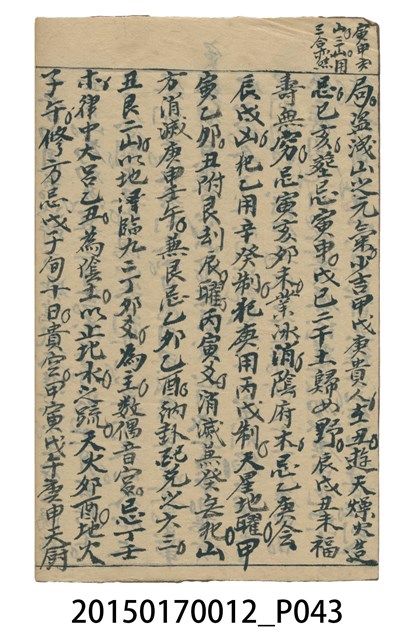 寅甲亥
山二山用
三合照
局盗洩山之元氣小吉甲戊庚貴人主丑遊天燥火造
忌巳亥壁忌寅申戊己二干土歸的野辰戌丑未福
壽無窮忌寅亥卯未業冰消陰府木忌乙庚會
辰戌凶犯乙用辛癸制犯庚用丙戊制天星地曜甲
寅乙卯丑附艮刦辰曜丙寅爻消滅無癸亥孔山
方消滅庚申壬午無艮忌乙卯乙酉納卦配兄之六三
丑艮二山以地澤臨九二丁卯爻為主數偶音宮忌丁壬
木律中大呂乙丑為陰土以止地水之疏天火卯酉地火
子午修方忌戊子旬十日貴宮甲寅戊午壬申天厨
20150170012_P043